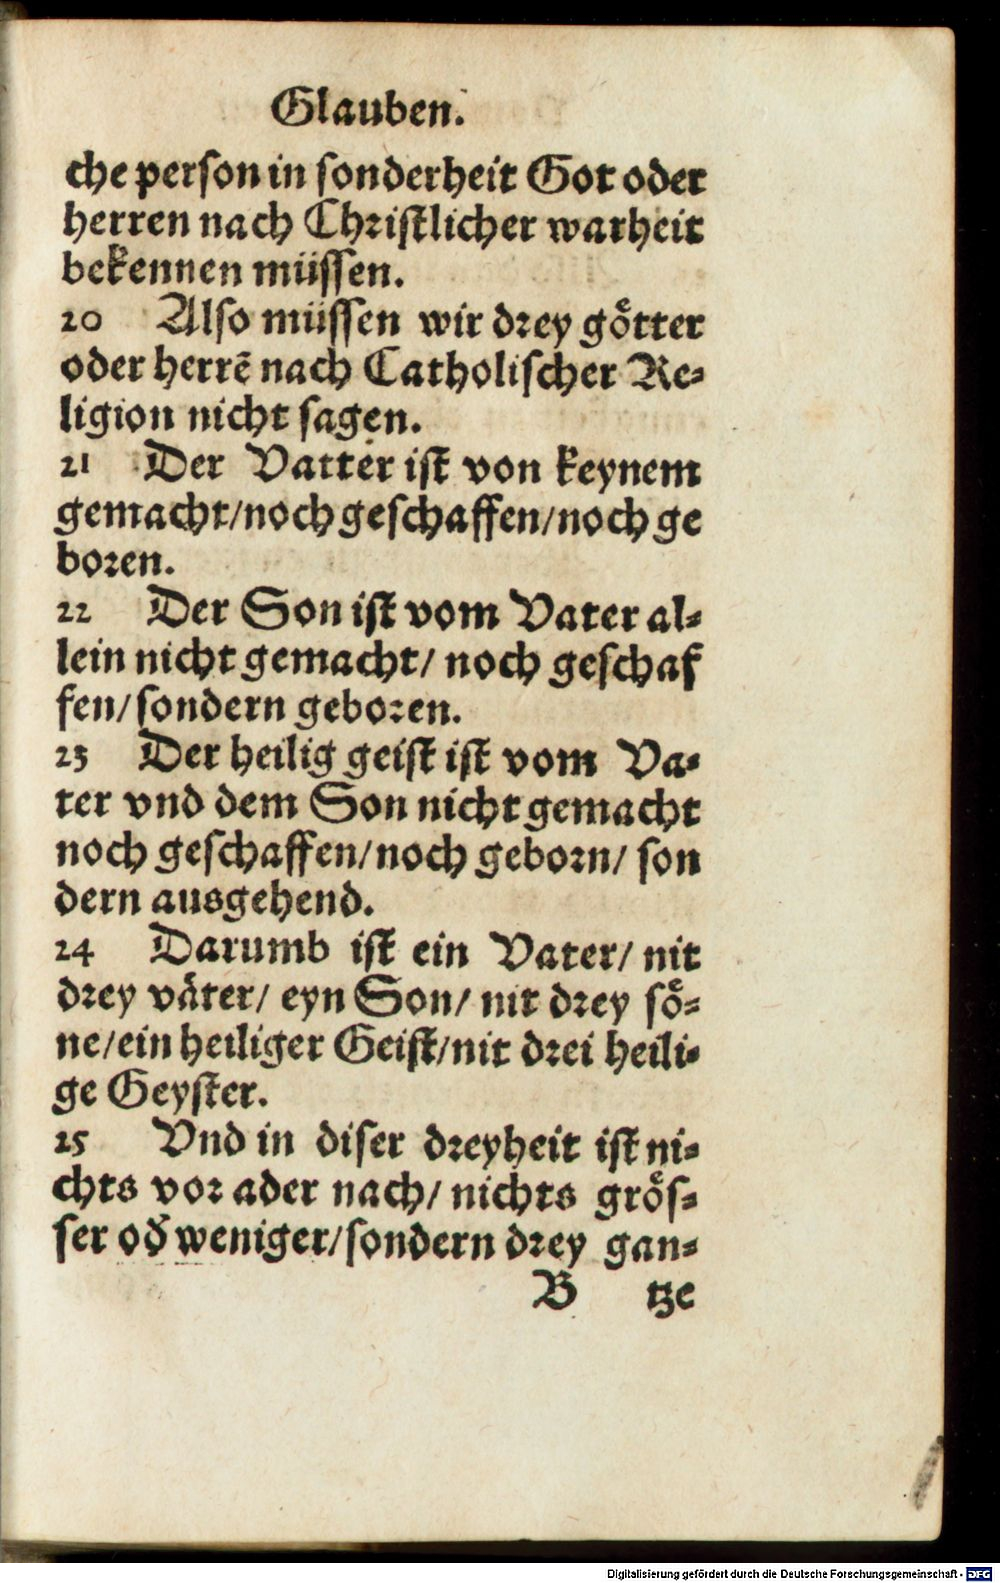 Glauben.
che person in sonderheit Got oder
herren nach Christlicher warheit
bekennen müssen.
20 Also müssen wir drey götter
oder herrẽ nach Catholischer Re-
ligion nicht sagen.
21 Der Vatter ist von keynem
gemacht/noch geschaffen/noch ge
boren.
22 Der Son ist vom Vater al-
lein nicht gemacht/ noch geschaf
fen/sondern geboren.
23 Der heilig geist ist vom Va-
ter vnd dem Son nicht gemacht
noch geschaffen/noch geborn/ son
dern ausgehend.
24 Darumb ist ein Vater/ nit
drey väter/ eyn Son/ nit drey sö-
ne/ein heiliger Geist/nit drei heili-
ge Geyster.
25 Vnd in diser dreyheit ist ni-
chts vor ader nach/ nichts grös-
ser od̕ weniger/sondern drey gan-
B tze
Digitalisierung gefördert durch die Deutsche Forschungsgemeinschaft - DFG